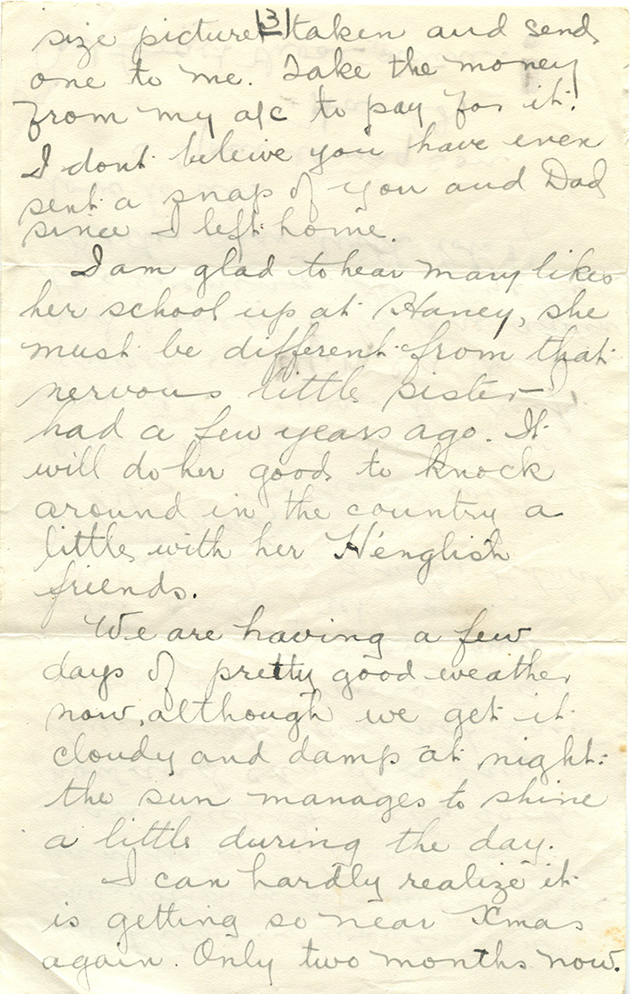 3
size picture taken and send
one to me. Take the money
from my a/c to pay for it.
I dont beleive you have even
sent a snap of you and Dad
since I left home.
I am glad to hear Mary likes
her school up at Haney, she
must be different from that
nervous little sister I
had a few years ago. It
will do her good to knock
around in the country a
little with her H'english
friends.
We are having a few
days of pretty good weather
now, although we get it
cloudy and damp at night.
the sun manages to shine
a little during the day.
I can hardly realize it
is getting so near Xmas
again. Only two months now.